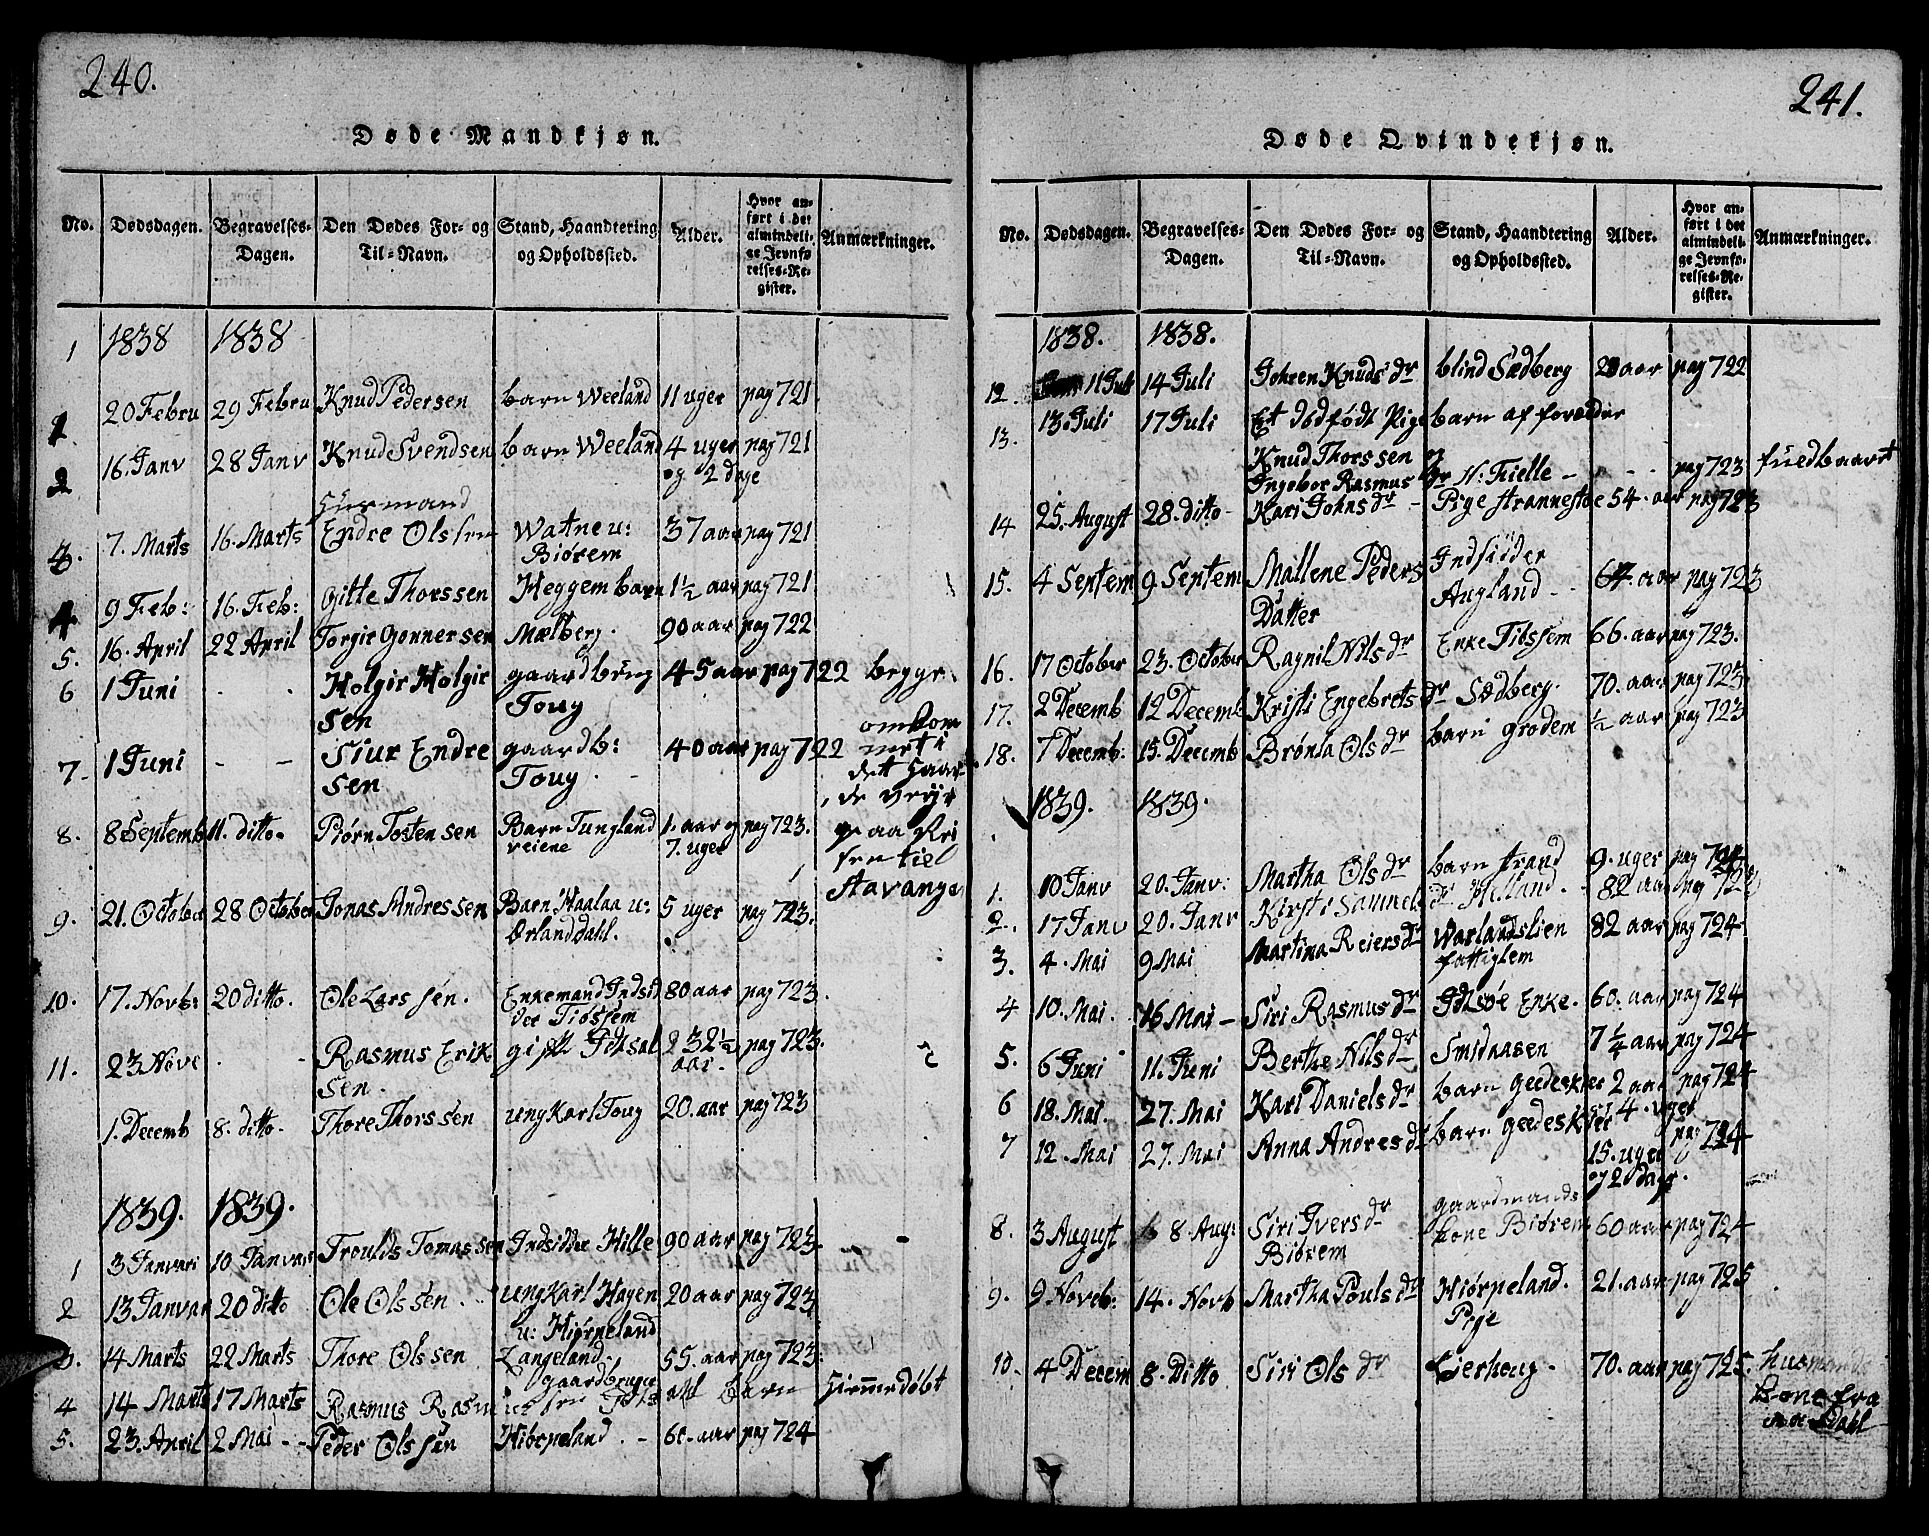 240.
Døde Mandkjøn.
No. Dødsdagen. Begravelses-Dagen. Den Dødes For- og Til-Navn. Stand, Haandtering og Opholdssted. Alder. Hvor anført i det almindelige Jevnførelses-Register. Anmærkninger.
1 1838 1838
1 20 Febru 29 Febru Knud Pedersen barn Weeland 11 uger pag 721
2 16. Janv 28 Janv Knud Svendsen barn Weeland 4 uger pag 721
og 2 dage
Huusmand
3. 7. Marts 16. Marts Endre Olssen Watne u: 37 aar pag 721
Biørem
4 9 Feb: 16. Feb: Gitle Thorssen Heggem barn 1½ aar pag 721
5. 16. April 22 April Torgir Gonnersen Mælberg. 90 aar pag 722
6 1 Juni - - Holgir Holgir gaardbrug 45 aar pag 722 begge
sen Toug omkom
7- 1 Juni - - Siur Endre gaardb: 40 aar pag 722 met i
sen Toug. - det haar
de veyr
8. 8 Septemb 11. ditto. Biørn Tosten sen Barn Tungland 1. aar og pag 723. paa Rei
veiene 7. uger sen tiel
Stavanger
9. 21. October 28 October Jonas Andressen Barn Haalaa u: 5 uger pag 723.
Ørlanddahl.
10. 17. Novb: 20 ditto. Ole Larssen. Enkemand Indsid 80 aar pag 723.
der Tiøssem
11. 23 Nove - - Rasmus Erik gift Idsal 32½ pag 723.
sen. aar.
1. Decemb 8. ditto- Thore Thorssen ungkarl Toug 20. aar pag 723
1839. 1839.
1 3 Janvari 10 Janvar Troulds Tomassen Indsidder Hille 90 aar pag 723
2 13 Janvar 20 ditto Ole Olssen. ungkarl Hagen 20 aar pag 723
u: Hiørpeland
3. 14 Marts 22 Marts Thore Olssen Langeland 55. aar pag 723.
gaardbruger
4 14 Marts 17 Marts Rasmus Rasmussen Barn Hiemmedøbt
5. 23. April 2 Mai - - Peder Olssen Hiørpeland - 60. aar pag 724
241.
Døde Qvindekjøn.
No. Dødsdagen. Begravelses-Dagen. Den Dødes For- og Til-Navn. Stand, Haandtering og Opholdssted. Alder. Hvor anført i det almindelige Jevnførelses-Register. Anmærkninger.
1838. 1838.
12. 11 Juli 14 Juli Johren Knuds dr blind Sædberg 20 aar pag 722
13. 13. Juli 17 Juli Et dødfødt Pige barn af forælder
Knud Thorssen og
Ingebor Rasmus dr N: Fielle - - - pag 723 fuldbaaret
14 25. August 28. ditto- Kari Johns dr - Pige strannestøe 54. aar pag 723
15. 4 Septem 9 Septem Mallene Peders Indsidder
Datter Augland - - 64. aar pag 723
16. 17 October 23. October Ragnil Nils dr Enke Tiøssem 66. aar pag 723.
17. 2 Decemb 12 Decemb Kristi Engebrets dr Sædberg. 70. aar pag 723
18. 7 Decemb: 15. Decemb Brønla Ols dr barn grodem ½ aar pag 723
1839. 1839.
1. 10 Janv 20. Janv: Martha Ols dr barn strand 9. uger pag 724
2. 17 Janv 20. Janv Kirsti Samuels dr Helland. 82 aar pag 724
3. 4. Mai 9 Mai Martina Reiers dr Warlandslien 82 aar pag 724
fattiglem
4 10. Mai. 16 Mai - Siri Rasmus dr Idsøe Enke. 60. aar pag 724
5. 6 Juni 11. Juni Berthe Nils dr Smidaasen 7¼ aar pag 724
6 18. Mai. 27. Mai Kari Daniels dr barn Geedeskier 2 aar pag 724
7 12. Mai 27. Mai Anna Andres dr barn Geedeskier 4. uger pag 724
15. uger
og 2 dage.
gaardmands
8. 3 August 8 Aug: Siri Ivers dr kone Biørem 60 aar pag 724
Biørem
9. 9 Noveb: 14. Novb Martha Pouls dr Hiørpeland. 21. aar pag 725
Pige
10. 4 Decem 8. Ditto Siri Ols dr Lierhoug. 70. aar pag 725. husmands
kone fra
Dahl